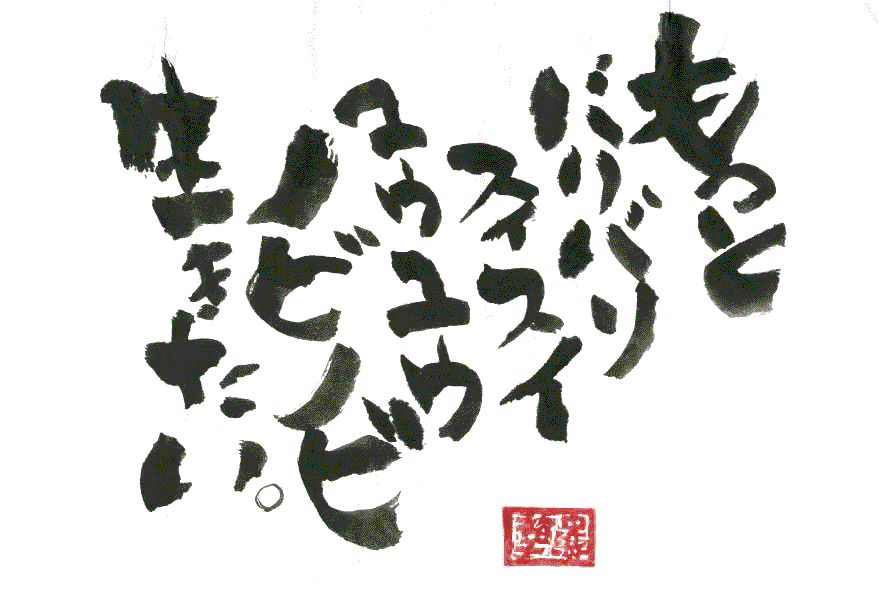 もっと
バリバリ
スイスイ
ユウユウ
ノビノビ
生きたい。